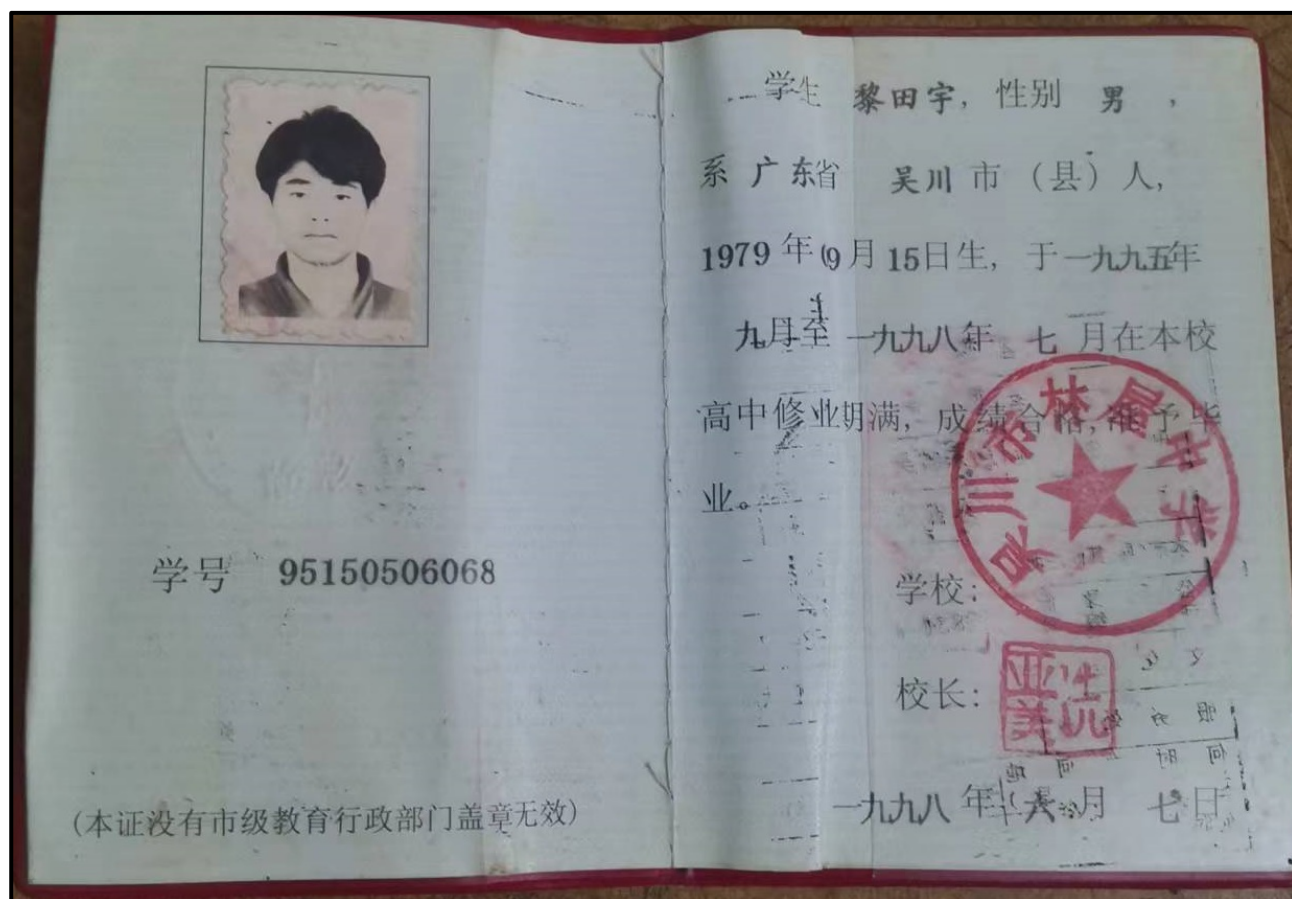 学号 95150506068
(本证没有市级教育行政部门盖章无效)
学生 黎田宇, 性别 男 ,
系 广东省 吴川市 (县) 人,
1979 年 09 月 15日生, 于一九九五年
九月至 一九九八年 七 月在本校
高中修业期满, 成绩合格, 准予毕
业。
吴川市林屋中学
学校:
校长:
一九九八 年 六 月 七 日